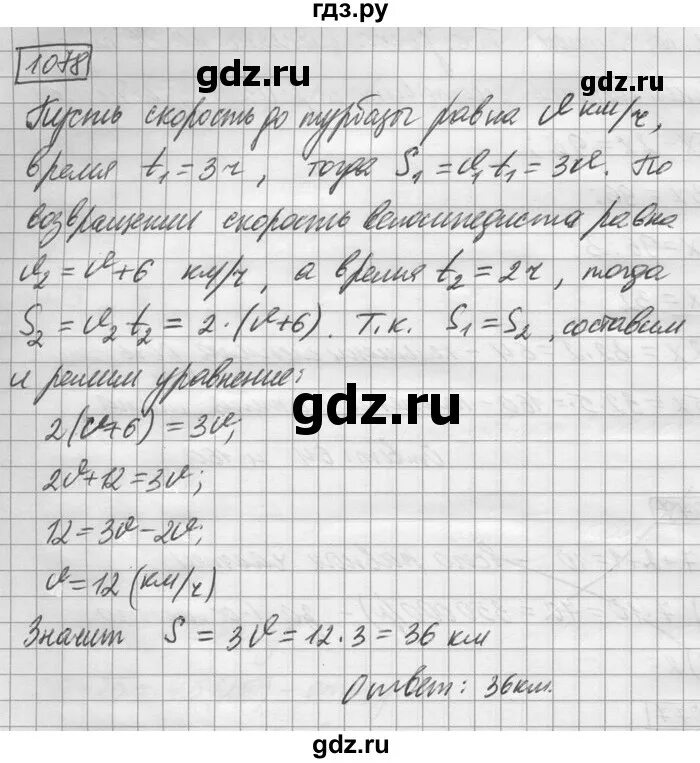 гдз.ру
1078
gdz.ru
gdz.ru
Пусть скорость до турбазы равна v км/ч,
время t₁ = 3 ч, тогда S₁ = v₁t₁ = 3v. По
возвращении скорость велосипедиста равна
v₂ = v+6 км/ч, а время t₂ = 2 ч, тогда
S₂ = v₂t₂ = 2·(v+6). Т.к. S₁ = S₂, составим
и решим уравнение:
gdz.ru
2(v+6) = 3v;
2v+12 = 3v;
12 = 3v - 2v;
gdz.ru
gdz.ru
v = 12 (км/ч)
Значит S = 3v = 12·3 = 36 км
Ответ: 36км.
gdz.ru
gdz.ru